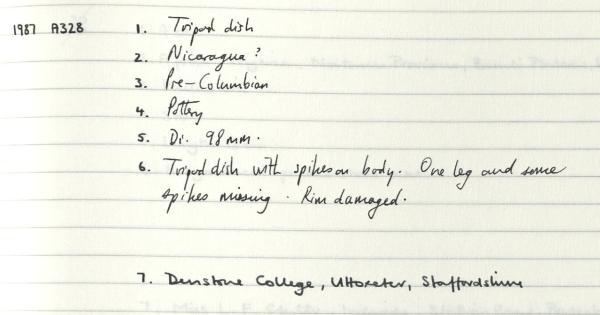 1987 A328 1. Tripod dish
2. Nicaragua?
3. Pre-Columbian
4. Pottery
5. Di. 98mm.
6. Tripod dish with spikes on body. One leg and some
spikes missing. Rim damaged.
7. Denstone College, Uttoxeter, Staffordshire